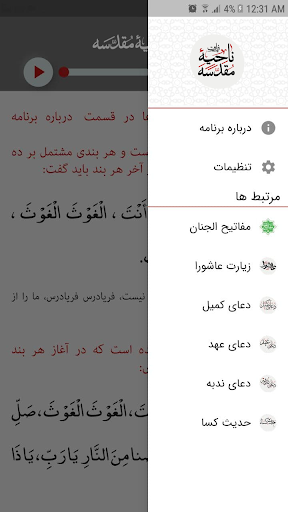 4% 12:31 AM
زیارت
ناحیهٔ
مقدسه
یهٔ مُقدَّسَه
درباره برنامه
تنظیمات
مرتبط ها
مفاتیح الجنان
زیارت عاشورا
دعای کمیل
دعای عهد
دعای ندبه
حدیث کسا
ها در قسمت درباره برنامه
است و هر بندی مشتمل بر ده
آخر هر بند باید گفت:
أَنْتَ ، الْغَوْثَ الْغَوْثَ ،
نیست، فریادرس فریادرس، ما را از
ده است که در آغاز هر بند
ـتَ، الْغَوْثَ الْغَوْثَ، صَلِّ
ـنا مِنَ النَّارِ یَا رَبِّ، یَا ذَا